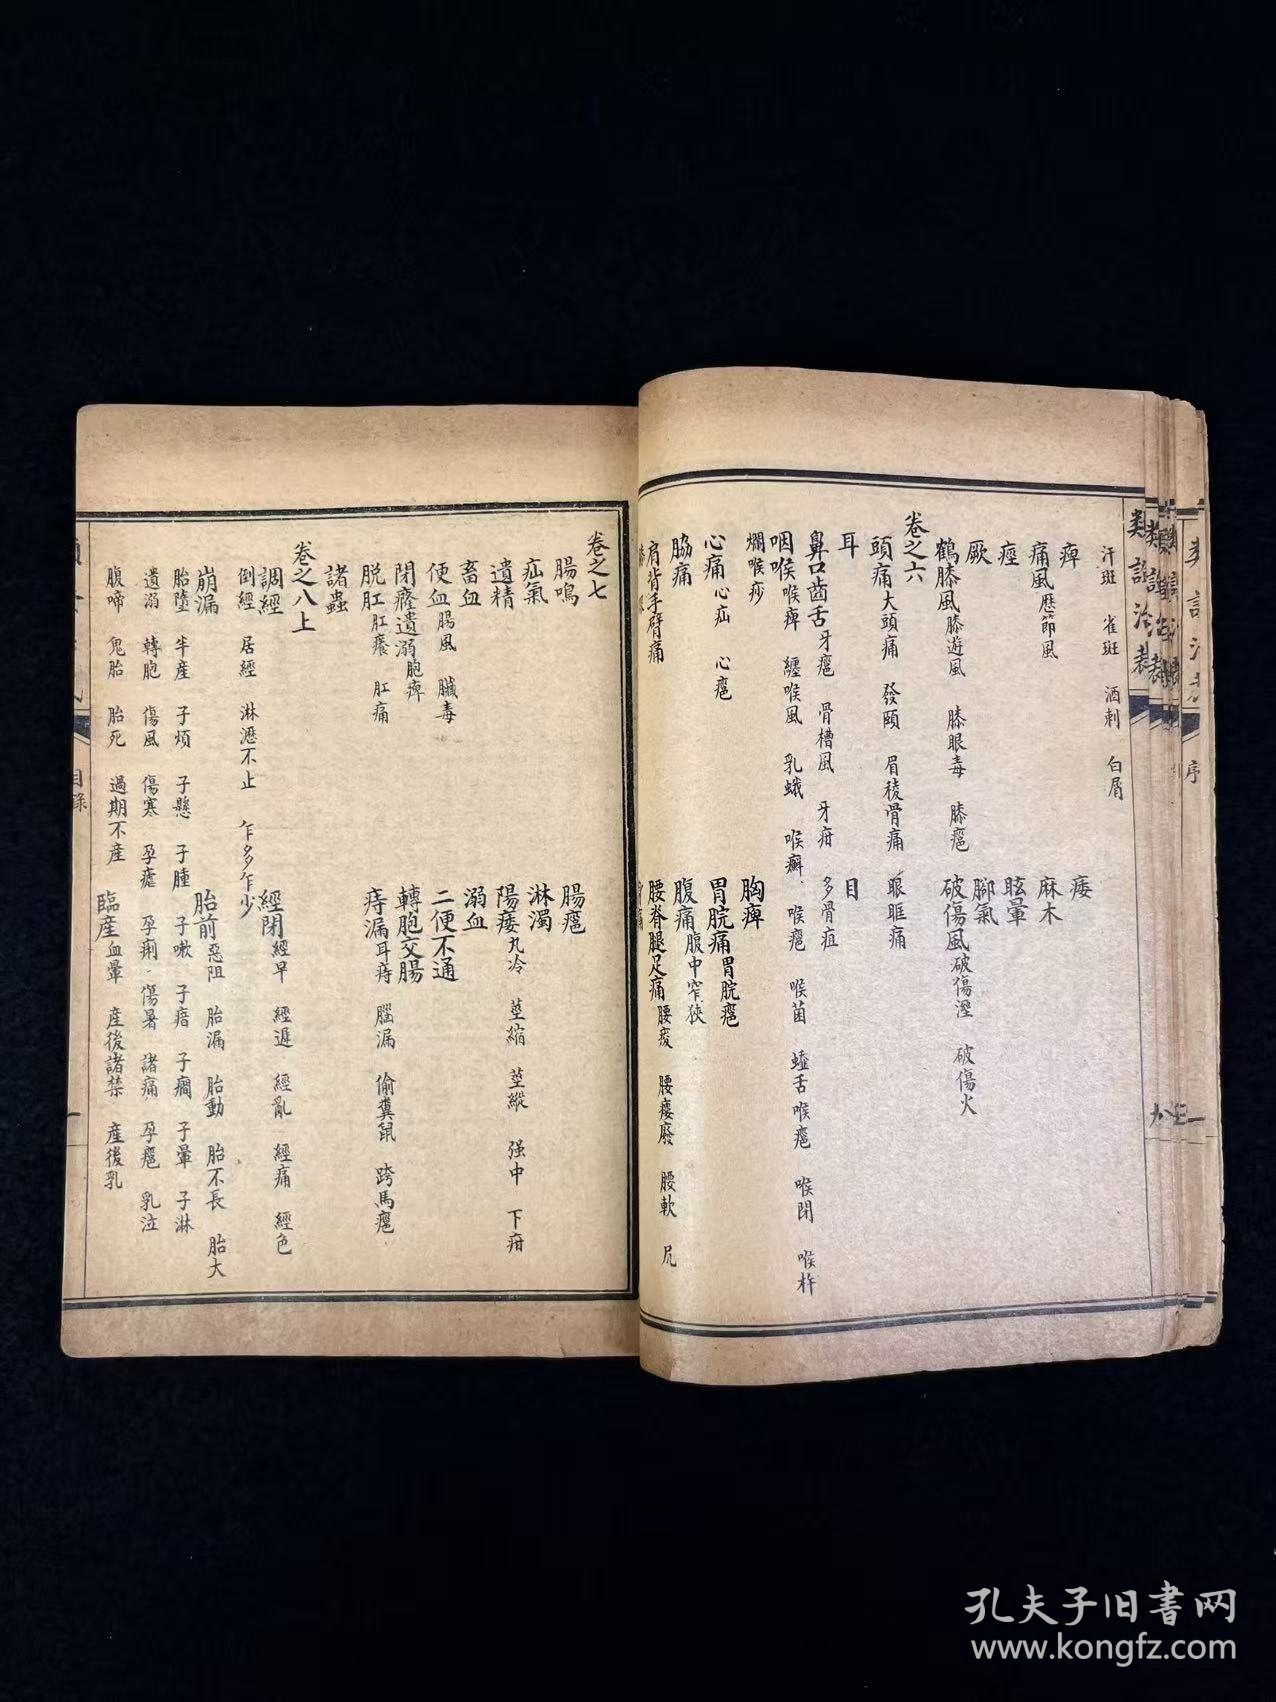 汗斑　雀斑　酒刺　白屑
痺　痿
痛風歷節風　麻木
痙　眩暈
厥　腳氣
鶴膝風膝遊風　膝眼毒　膝癰　破傷風破傷溼　破傷火
卷之六
頭痛大頭痛　發頤　眉稜骨痛　眼眶痛
耳　目
鼻口齒舌牙癰　骨槽風　牙疳　多骨疽
咽喉喉痺　纏喉風　乳蛾　喉癬　喉癰　喉菌　螘舌喉癰　喉閉　喉杵
爛喉痧　胸痺
心痛心疝　心癰　胃脘痛胃脘癰
脇痛　腹痛腹中窄狹
肩背手臂痛　腰脊腿足痛腰痠　腰痿廢　腰軟　尻
卷之七
腸鳴　腸癰
疝氣　淋濁
遺精　陽痿丸冷　莖縮　莖縱　强中　下疳
畜血　溺血
便血腸風　臟毒　二便不通
閉癃遺溺胞痺　轉胞交腸
脱肛肛癢　肛痛　痔漏耳痔　腦漏　偷糞鼠　跨馬癰
諸蟲
卷之八上
調經　經閉經早　經遲　經亂　經痛　經色
倒經　居經　淋瀝不止　乍多乍少
崩漏　胎前惡阻　胎漏　胎動　胎不長　胎大
胎墮　半産　子煩　子懸　子腫　子嗽　子瘖　子癇　子暈　子淋
遺溺　轉胞　傷風　傷寒　孕瘧　孕痢　傷暑　諸痛　孕癰　乳泣
腹啼　鬼胎　胎死　過期不産　臨産血暈　産後諸禁　産後乳
目錄
一
類證治裁
序
孔夫子旧書网
www.kongfz.com